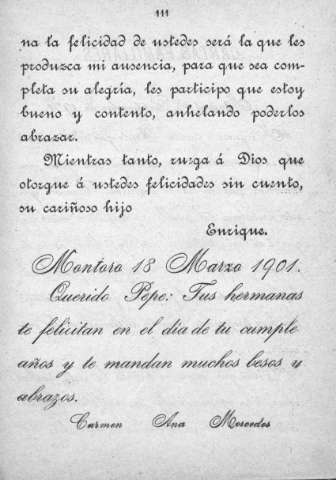 111
na la felicidad de ustedes será la que les
produzca mi ausencia, para que sea com-
pleta su alegría, les participo que estoy
bueno y contento, anhelando poderlos
abrazar.
Mientras tanto, ruega á Dios que
otorgue á ustedes felicidades sin cuento,
su cariñoso hijo
Enrique.
Montoro 18 Marzo 1901.
Querido Pepe: Tus hermanas
te felicitan en el dia de tu cumple
años y te mandan muchos besos y
abrazos.
Carmen Ana Mercedes